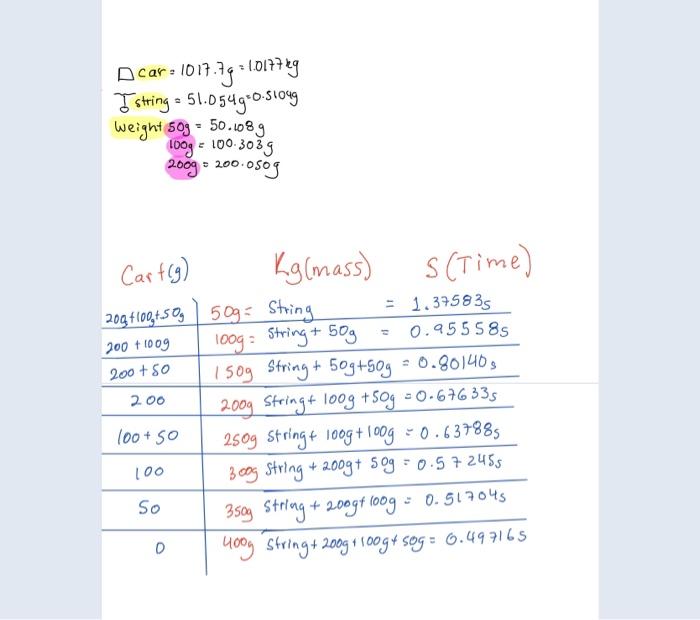 car = 1017.7g = 1.0177kg
string = 51.054g = 0.5104g
Weight 50g = 50.108g
100g = 100.303g
200g = 200.050g
Cart(g) Kg(mass) S(Time)
20g+100g+50g 50g = String = 1.37583s
200 + 100g 100g = String + 50g = 0.95558s
200 + 50 150g String + 50g+50g = 0.80140s
200 200g String + 100g + 50g = 0.67633s
100 + 50 250g String + 100g + 100g = 0.63788s
100 300g String + 200g + 50g = 0.57245s
50 350g String + 200g + 100g = 0.51704s
0 400g String + 200g + 100g + 50g = 0.49716s